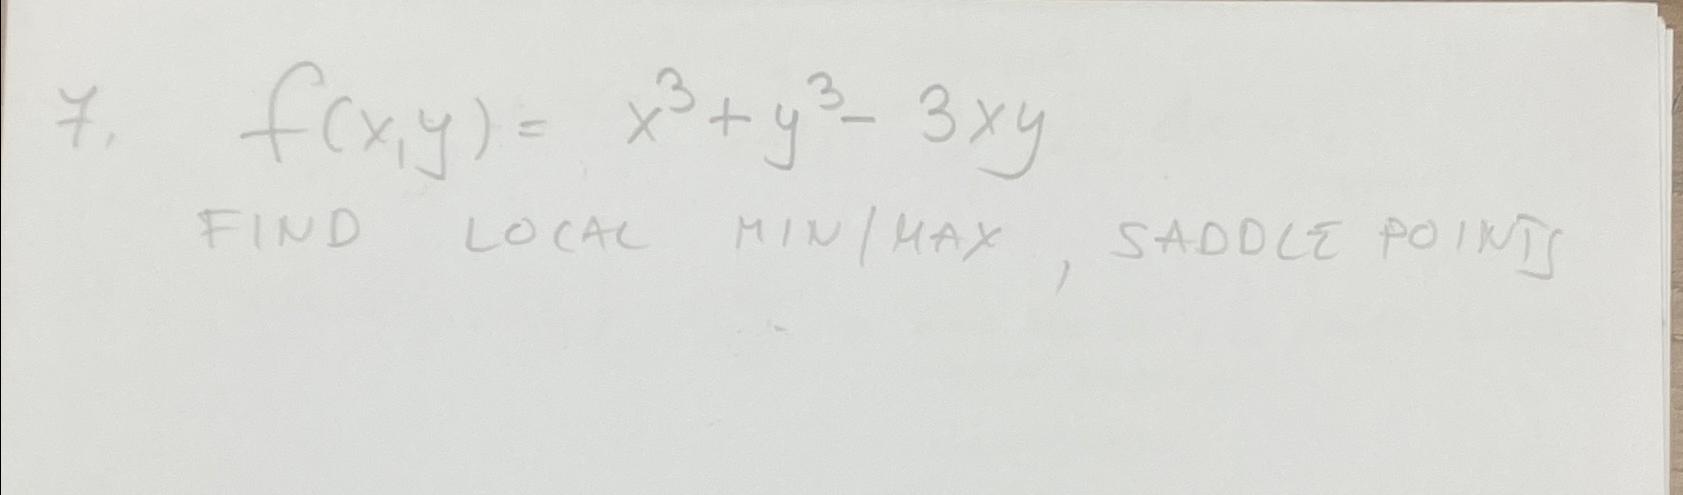 7. f(x,y) = x³ + y³ - 3xy
FIND LOCAL MIN/MAX, SADDLE POINTS